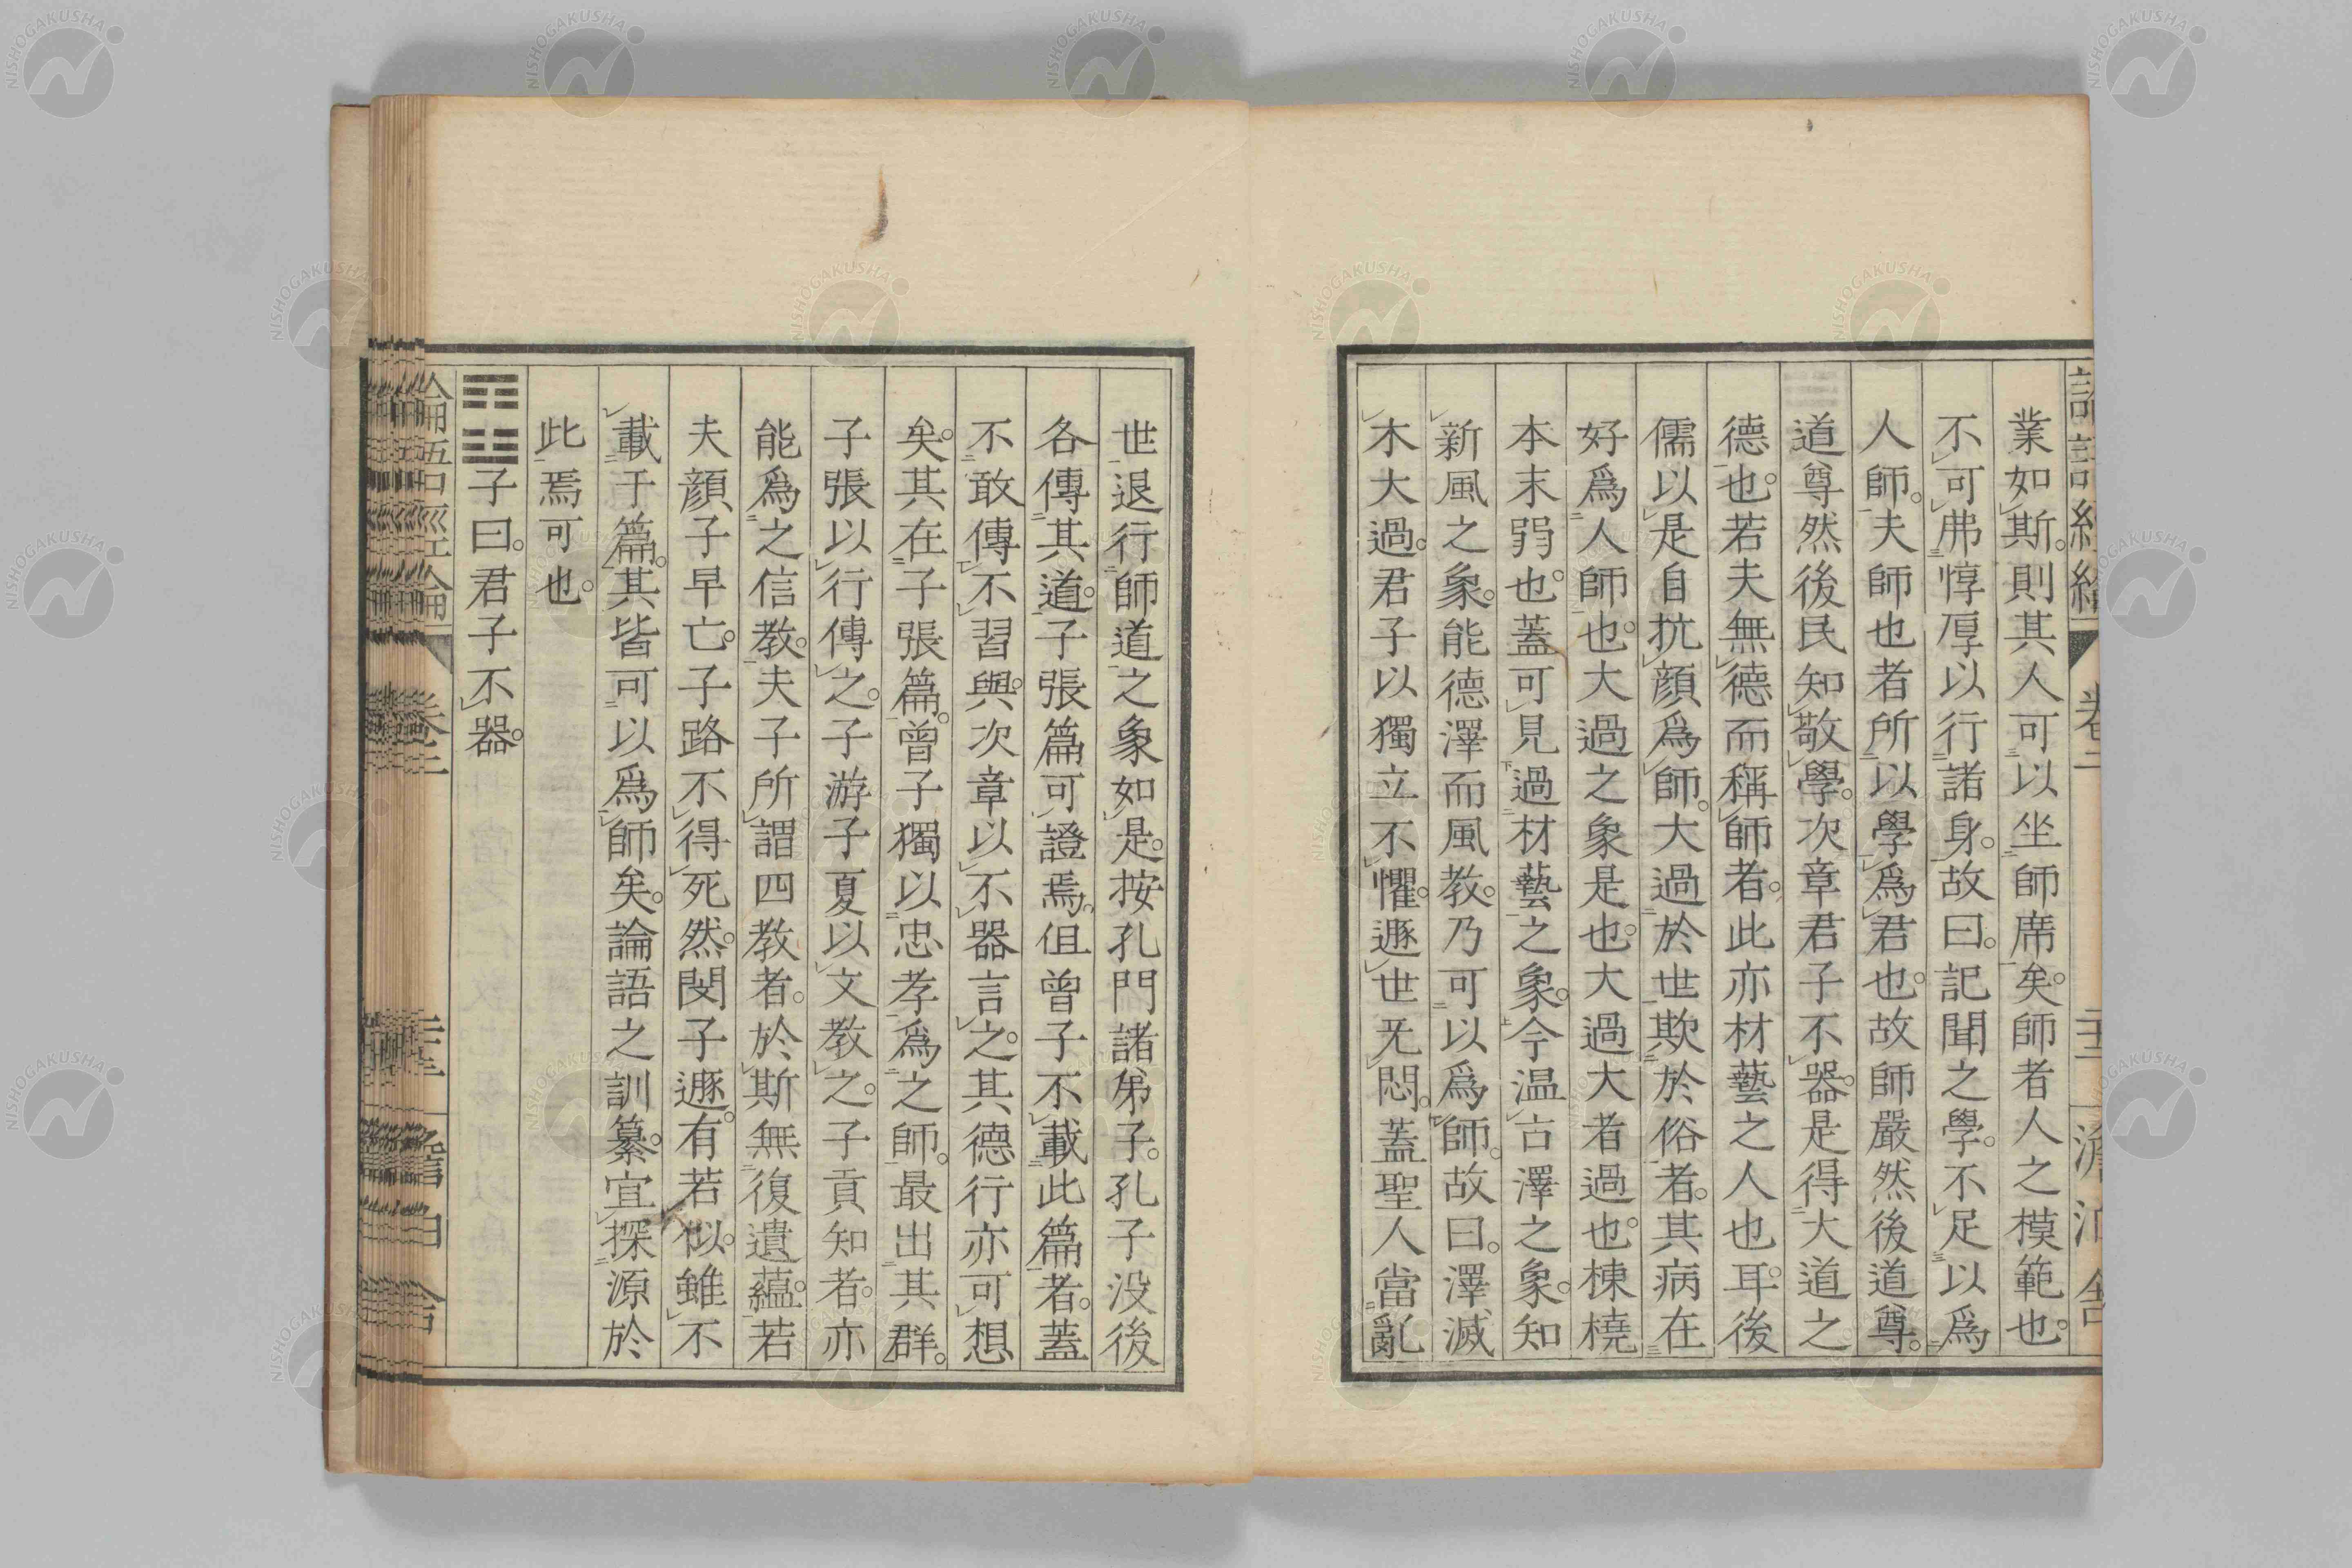 業如斯。則其人可以坐師席矣。師者人之模範也。
不可弗惇厚以行諸身。故曰。記聞之學。不足以爲
人師。夫師也者所以學爲君也。故師嚴然後道尊。
道尊然後民知敬學。次章君子不器。是得大道之
德也。若夫無德而稱師者。此亦材藝之人也耳。後
儒以是自抗顏爲師。大過於世欺於俗者。其病在
好爲人師也。大過之象是也。大過大者過也。棟橈
本末弱也。蓋可見過材藝之象。今温古澤之象。知
新風之象。能德澤而風教。乃可以爲師。故曰。澤滅
木大過。君子以獨立不懼。遯世无悶。蓋聖人當亂
世退行師道之象如是。按孔門諸弟子。孔子没後
各傳其道。子張篇可證焉。但曾子不載此篇者。蓋
不敢傳不習與。次章以不器言之。其德行亦可想
矣。其在子張篇。曾子獨以忠孝爲之師。最出其群。
子張以行傳之。子游子夏以文教之。子貢知者。亦
能爲之信教。夫子所謂四教者。於斯無復遺蘊。若
夫顏子早亡。子路不得死然。閔子遯。有若似。雖不
載于篇。其皆可以爲師矣。論語之訓纂。宜探源於
此焉可也。
子曰。君子不器。
論語經綸 卷二